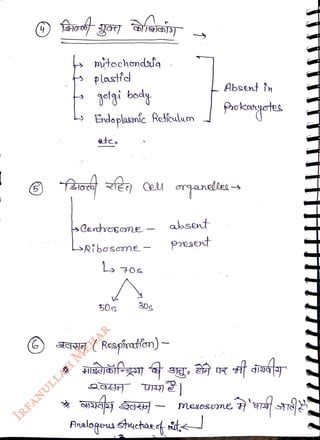 ④ झिल्ली युक्त कोशिकांग →
→ mitochondria
→ plastid
→ golgi body.
→ Endoplasmic Reticulum
etc.
Absent in
Prokaryotes
⑤ झिल्ली रहित Cell organelles →
→ Centrosome - absent
→ Ribosome - present
↳ 70s
50s 30s
⑥ श्वसन (Respiration) -
* माइटोकॉन्ड्रिया की अनु. होने पर भी वायवीय
श्वसन पाया है।
* वायवीय श्वसन - mesosome में पायी जाती है
Analogous Structure of mit.